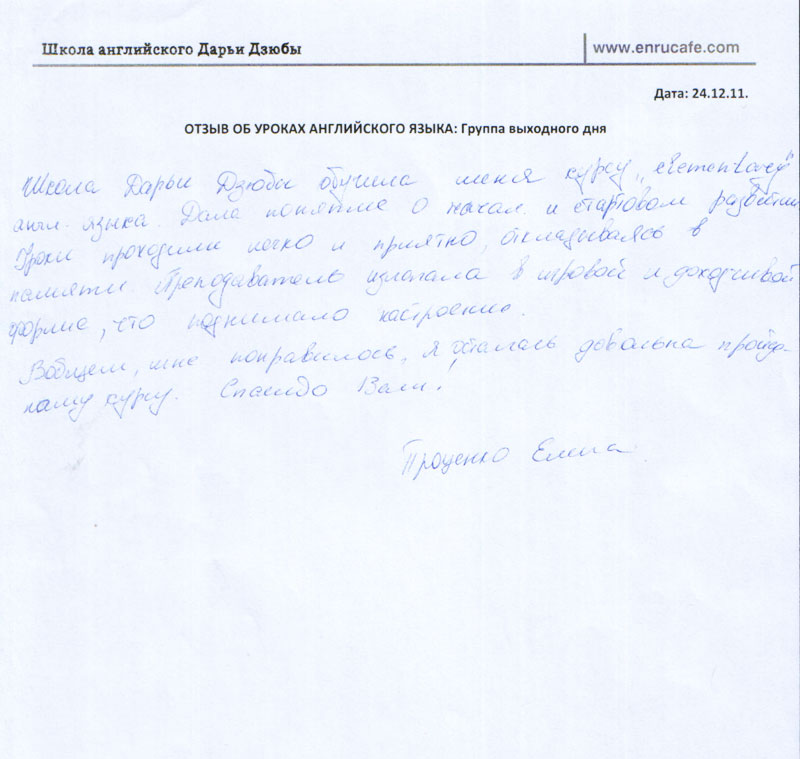 Школа английского Дарьи Дзюбы
www.enrucafe.com
Дата: 24.12.11.
ОТЗЫВ ОБ УРОКАХ АНГЛИЙСКОГО ЯЗЫКА: Группа выходного дня
Школа Дарьи Дзюбы обучила меня курсу „elementary"
англ. языка. Дала понятие о начал. и стартовом развитии
Уроки проходили легко и приятно, откладываясь в
памяти. Преподаватель излагала в игровой и доходчивой
форме, что поднимало настроение.
Вобщем, мне понравилось, я осталась довольна пройде-
ному курсу. Спасибо Вам!
Проценко Елена.